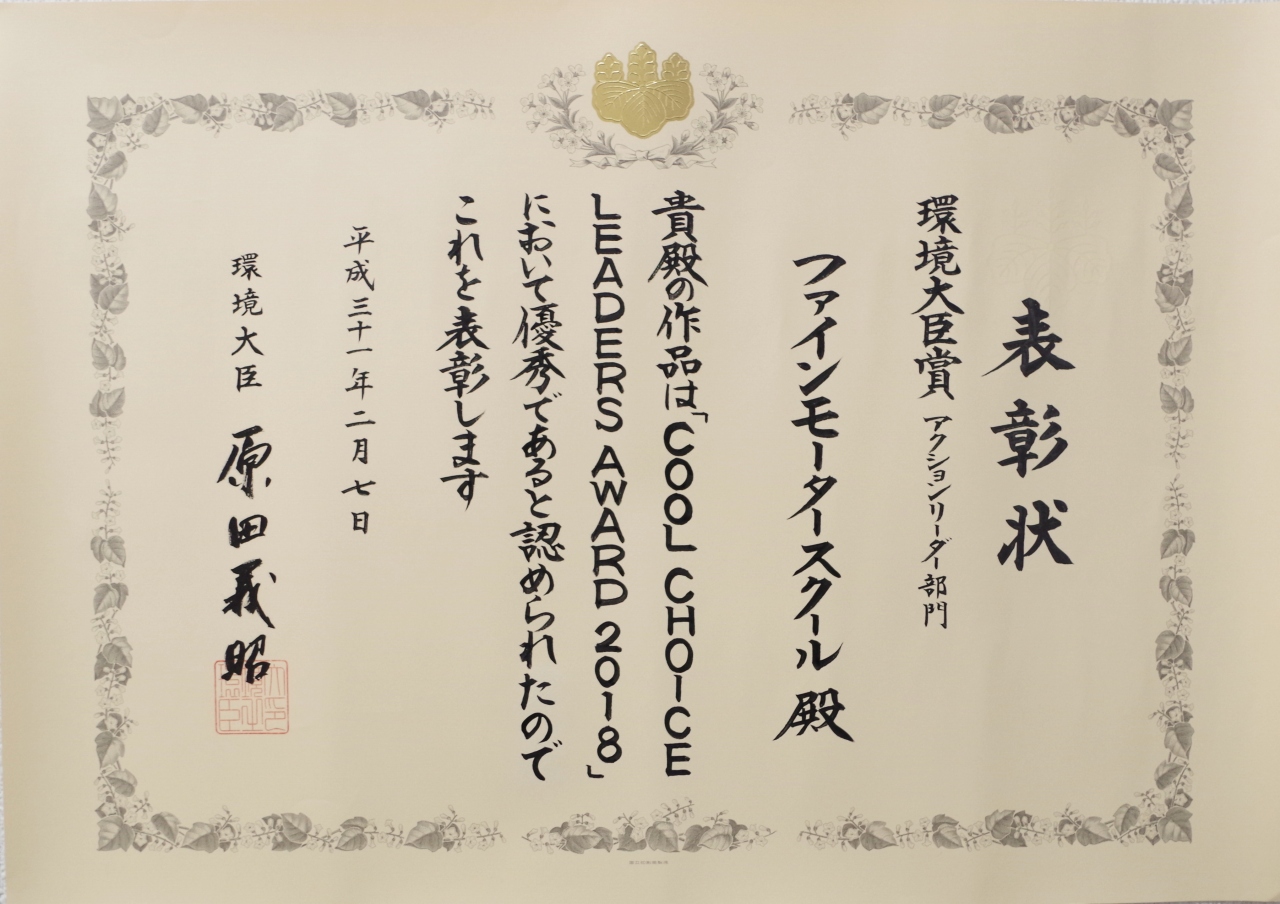 表彰状
環境大臣賞 アクションリーダー部門
ファインモータースクール 殿
貴殿の作品は「COOL CHOICE
LEADERS AWARD 2018」
において優秀であると認められたので
これを表彰します
平成三十一年二月七日
環境大臣 原田義昭